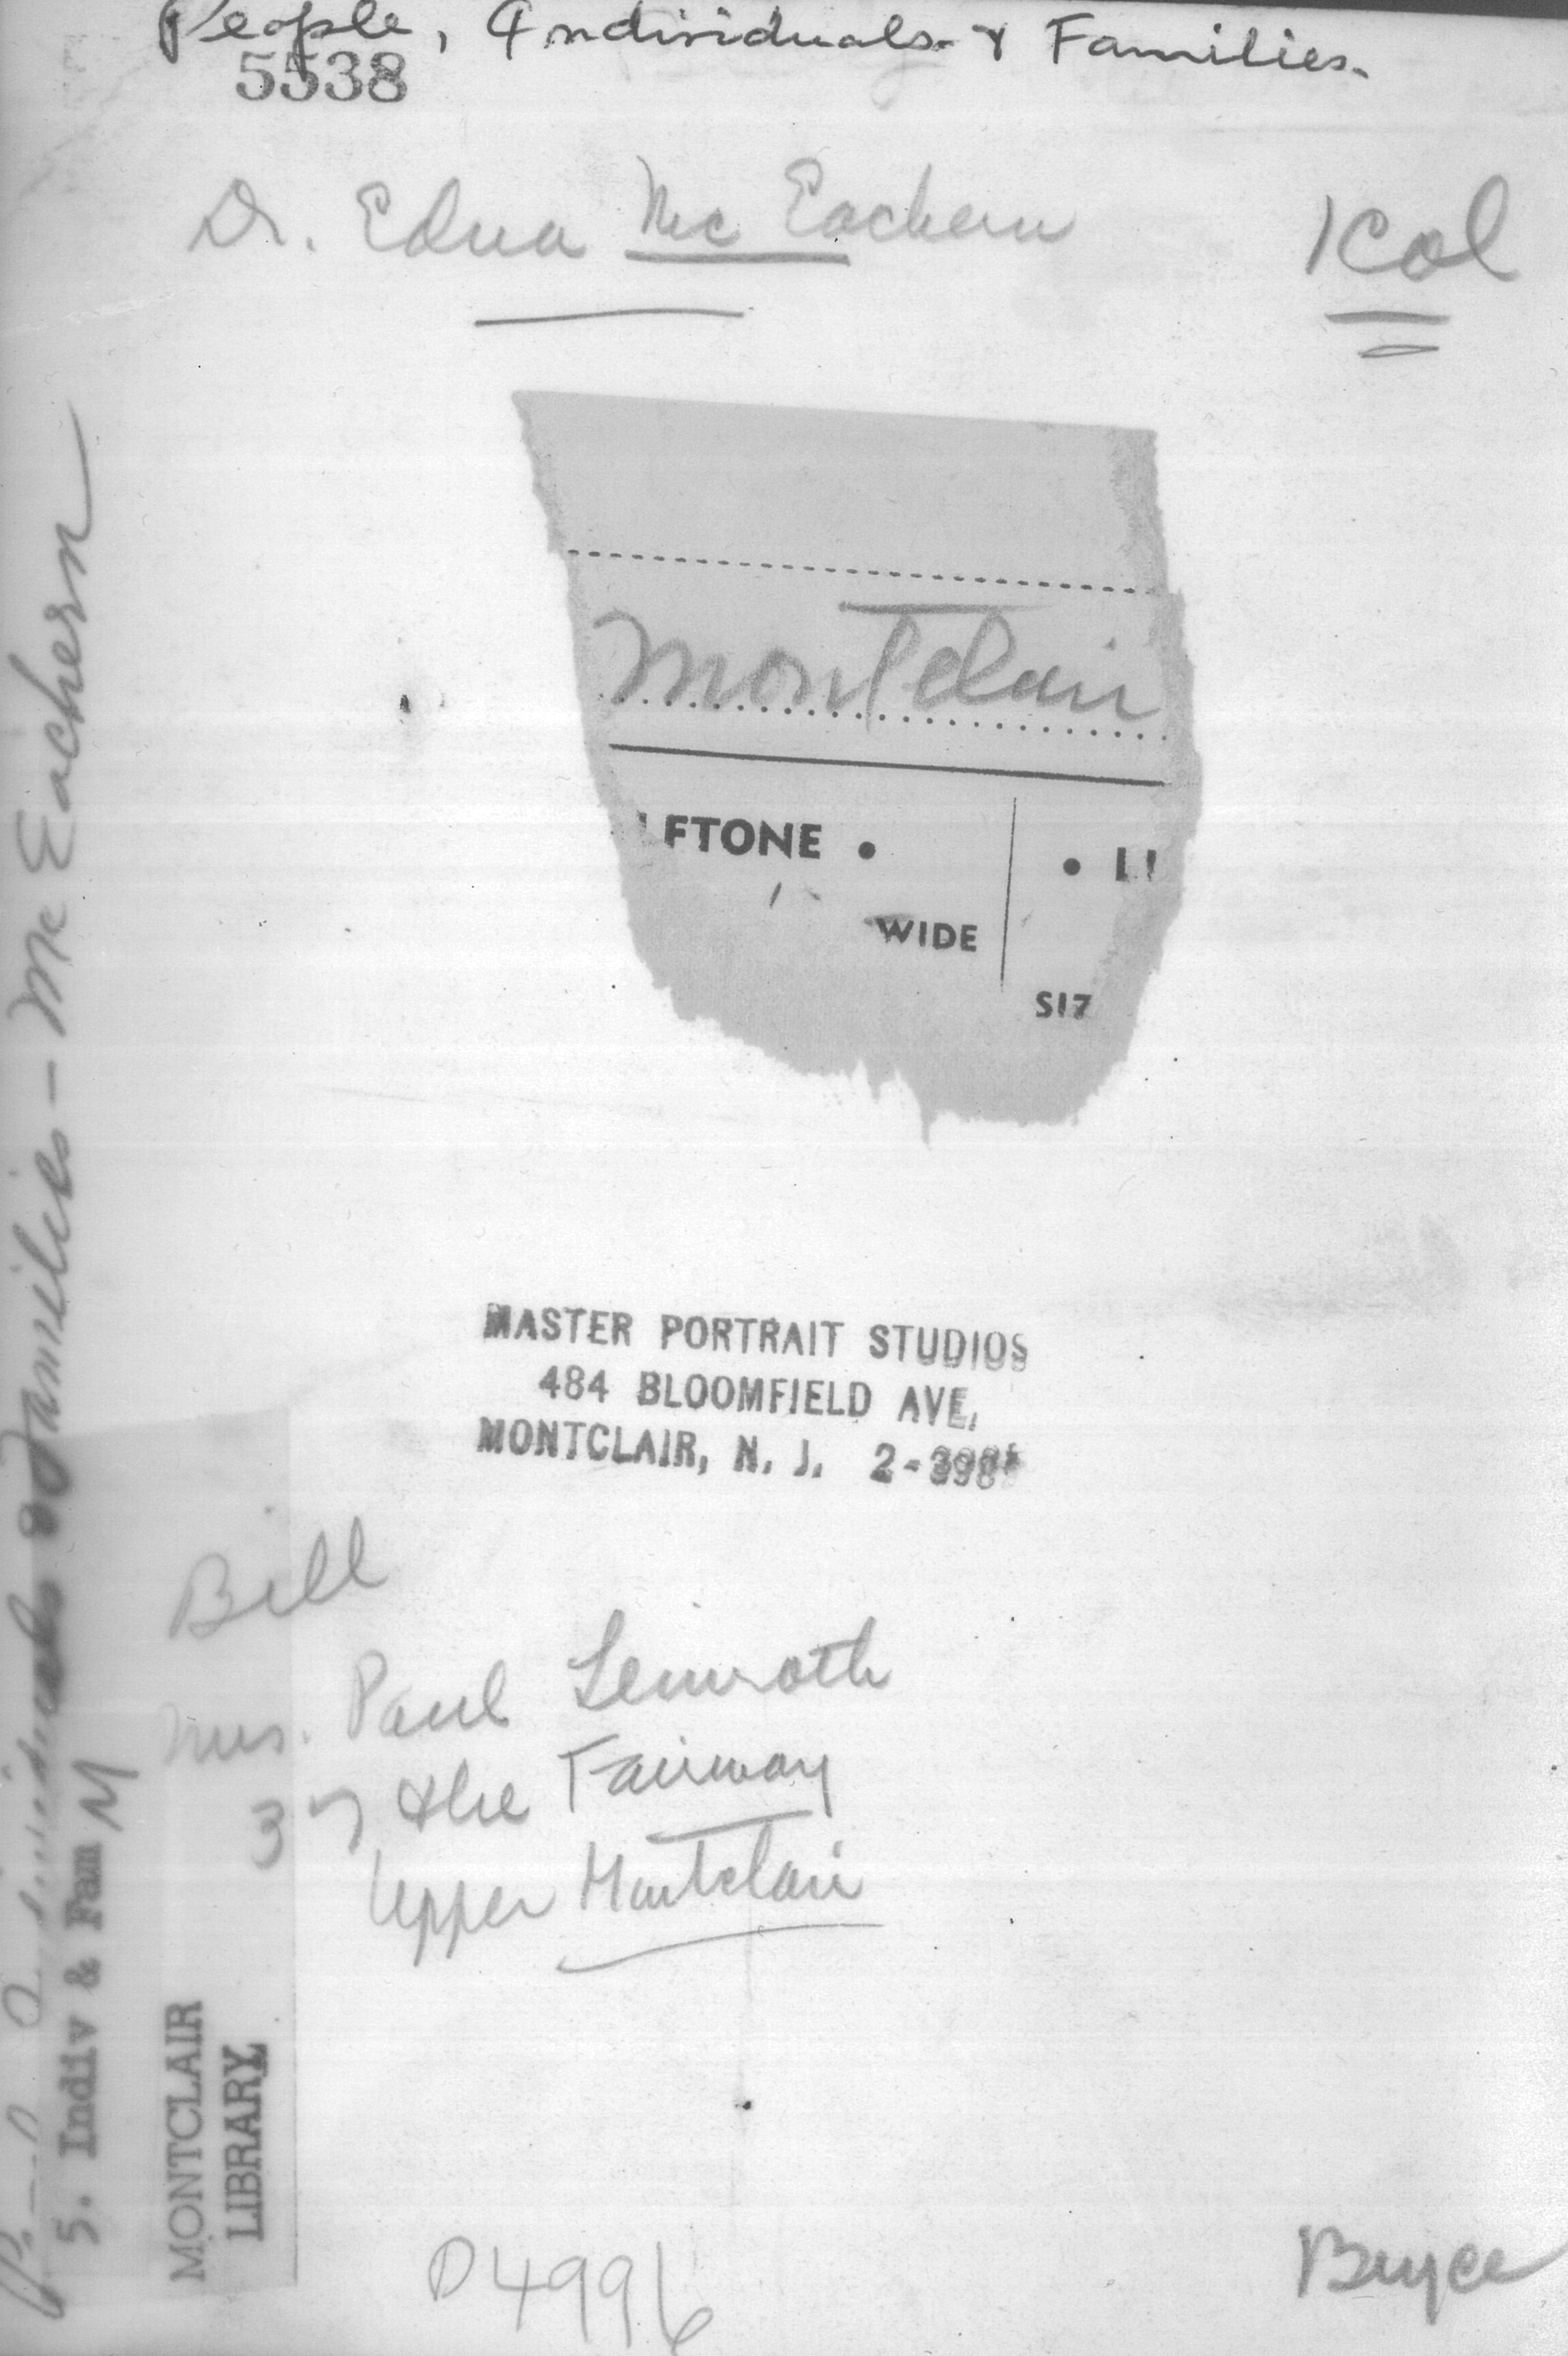 People, Individuals & Families.
5538
Dr. Edna Mc Eachern
1 col
Montclair
LFTONE •
• LI
WIDE
S17
MASTER PORTRAIT STUDIOS
484 BLOOMFIELD AVE.
MONTCLAIR, N. J. 2-398
Bill
Mrs. Paul
37 the Fairway
Upper Montclair
D4996
Bryce
Individuals & Families - Mc Eachern
5. Indiv & Fam M
MONTCLAIR
LIBRARY